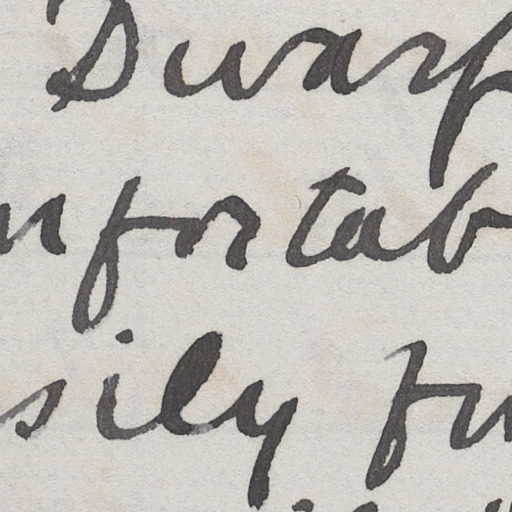 Dwarf
nfortab
sily fu